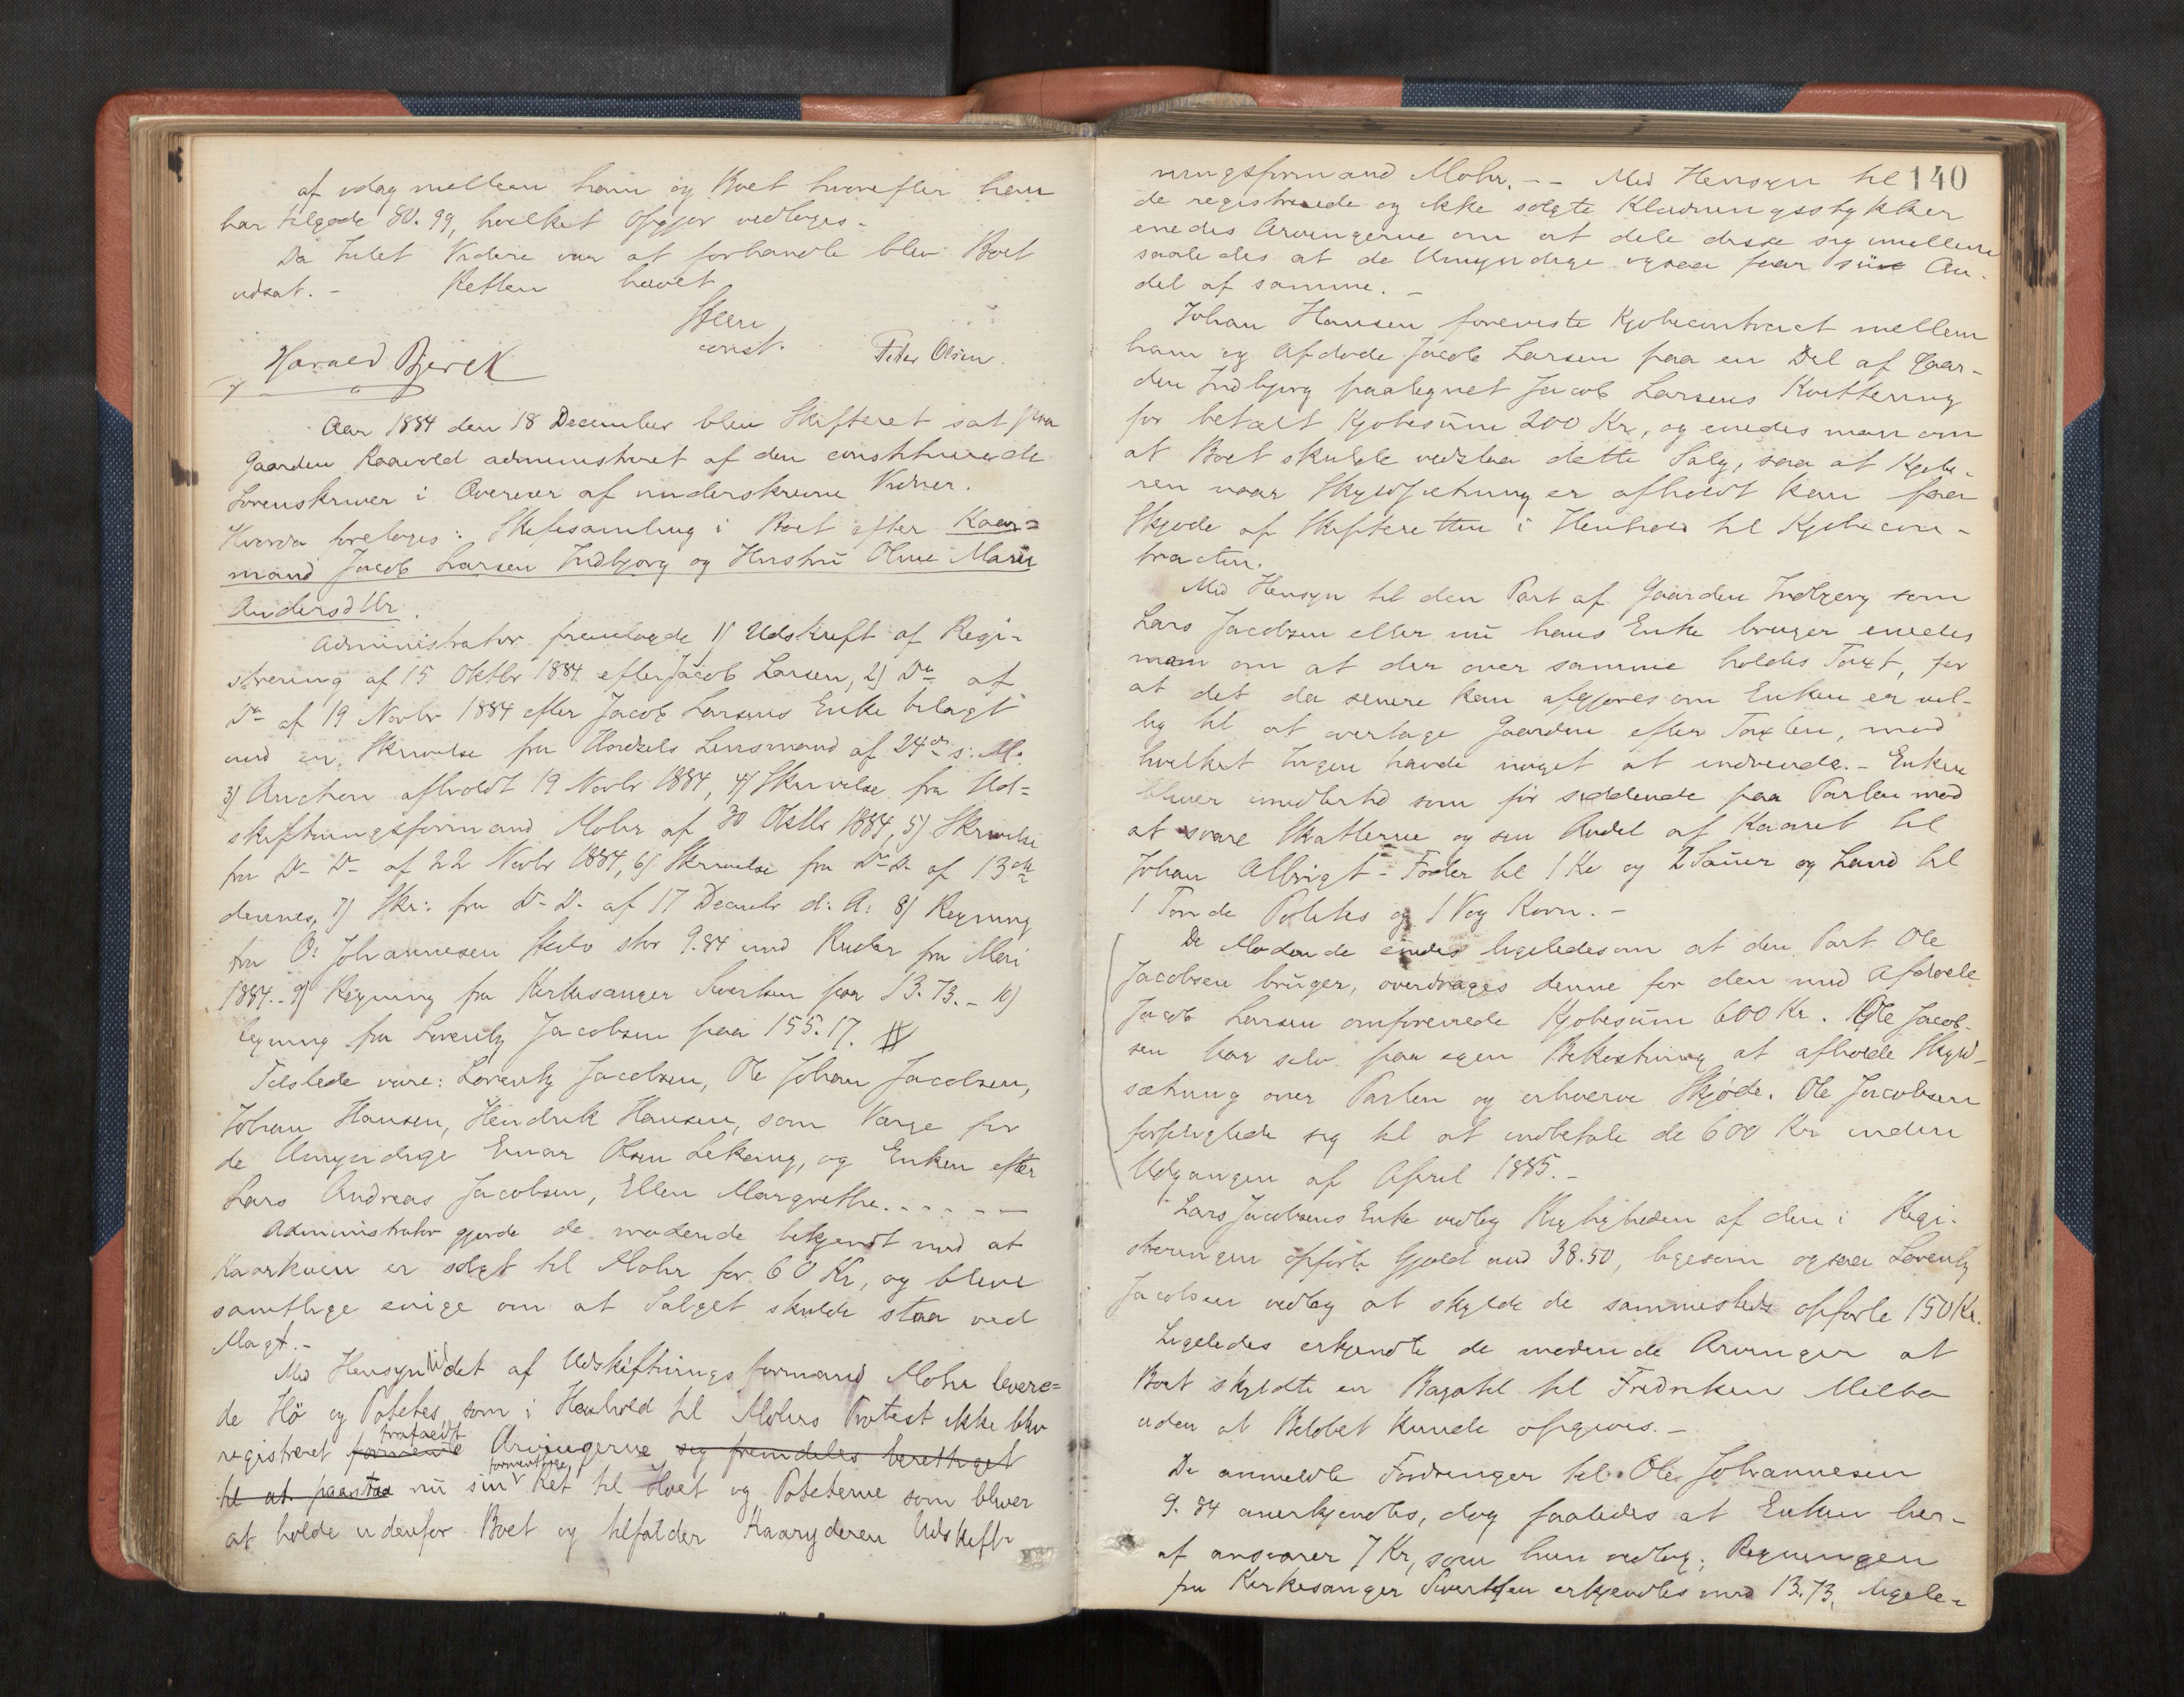 af idag mellem ham og Boet hvorefter han
har tilgode 80.99, hvilket Opgjør vedlægges.-
Da Intet Videre var at forhandle blev Boet
udsat. - Retten hævet
Steen
const.
Harald Bjerck
Peder Olsen.
Aar 1884 den 18 December blev Skifteret sat paa
Gaarden Raavold administreret af den constituerede
Sorenskriver i Overvær af underskrevne Vidner.
Hvorda foretoges: Skiftesamling i Boet efter Kaar=
mand Jacob Larsen Indbjorg og Hustrü Oline Marie
Andersdtr.
Administrator fremlagde 1) Udskrift af Regi-
strering af 15 Oktbr 1884 efter Jacob Larsen, 2) Do af
Do af 19 Novbr 1884 efter Jacob Larsens Enke bilagt
med en Skrivelse fra Lensmand af 24de s: M.
3) Auction afholdt 19 Novbr 1884, 4) Skrivelse fra Ud=
skiftningsformand Mohr af 30 Oktbr 1884, 5) Skrivelse
fra Do Do af 22 Novbr 1884, 6) Skrivelse fra Do Do af 13de
dennes, 7) Skr: fra D. D. af 17 Decembr d: A: 8) Regning
fra O: Johannesen stor 9.84 med Renter fra Mai
1884.- 9) Regning fra Kirkesanger Sivertsen paa 13.73.- 10)
Regning fra Lorentz Jacobsen paa 155.17.
Tilstede vare: Lorentz Jacobsen, Ole Johan Jacobsen,
Johan Hansen, Hendrik Hansen, som Værge for
de Umyndige Einar Olsen Lekang, og Enken efter
Lars Andreas Jacobsen, Ellen Margrethe. - - - - -
Administrator gjorde de mødende bekjendt med at
Kaarkuen er solgt til Mohr for 60 Kr, og bleve
samtlige enige om at Salget skulde staa ved
Magt.-
Med Hensyn til det af Udskiftningsformand Mohr levere=
de Hö og Potetes, som i Henhold til Mohrs Protest ikke blev
registreret formente frafaldt Arvingerne sig fremdeles berettiget
til at paastaa nü sin formentlige Ret til Höet og Poteterne som bliver
at holde udenfor Boet og tilfalder Kaaryderen Udskift
140
ningsformand Mohr. -- Med Hensyn til
de registrerede og ikke solgte Klædningsstykker
enedes Arvingerne om at dele disse sig imellem
saaledes at de Umyndige ogsaa faar sin An-
del af samme. -
Johan Hansen foreviste Kjøbecontract mellem
ham og Afdøde Jacob Larsen paa en Del af Gaar-
den Indbjorg paategnet Jacob Larsens Kvittering
for betalt Kjøbesüm 200 Kr, og enedes man om
at Boet skulde vedstaa dette Salg, saa at Kjøbe-
ren naar Skyldsætning er afholdt kan faa
Skjøde af Skifteretten i Henhold til Kjøbecon-
tracten.
Med Hensyn til den Part af Gaarden Indbjorg som
Lars Jacobsen eller nü hans Enke bruger enedes
man om at der over samme holdes Taxt, for
at det da senere kan afgjøres om Enken er vil-
lig til at overtage Gaarden efter Taxten, mod
hvilket Ingen havde noget at indvende. - Enken
bliver imidlertid som för siddende paa Parten mod
at svare Skatterne og sin Andel af Kaaret til
Johan Albrigt - Foder til 1 Ko og 2 Saüer og Land til
1 Tønde Potetes og 1 Vog Korn. -
De Mødende enedes ligeledes om at den Part Ole
Jacobsen brüger, overdrages denne for den med Afdøde
Jacob Larsen omforenede Kjøbesüm 600 Kr. Ole Jacob-
sen har selv paa egen Bekostning at afholde Skyld-
sætning over Parten og erhverve Skjøde. Ole Jacobsen
forpligtede sig til at indbetale de 600 Kr inden
Udgangen af April 1885. -
Lars Jacobsens Enke vedtog Rigtigheden af den i Regi-
streringen opførte Gjæld med 38.50, ligesom ogsaa Lorentz
Jacobsen vedtog at skylde de sammesteds opførte 150 Kr.
Ligeledes erkjendte de mødende Arvinger at
Boet skyldte en Bagatel til Fredriken Milba
uden at Beløbet kunde opgives. -
De anmeldte Fordringer til Ole Johannesen
9.84 anerkjendtes, dog saaledes at Enken her-
af ansvarer 7 Kr, som hun vedtog; Regningen
fra Kirkesanger Sivertsen erkjendtes med 13.73, ligele-